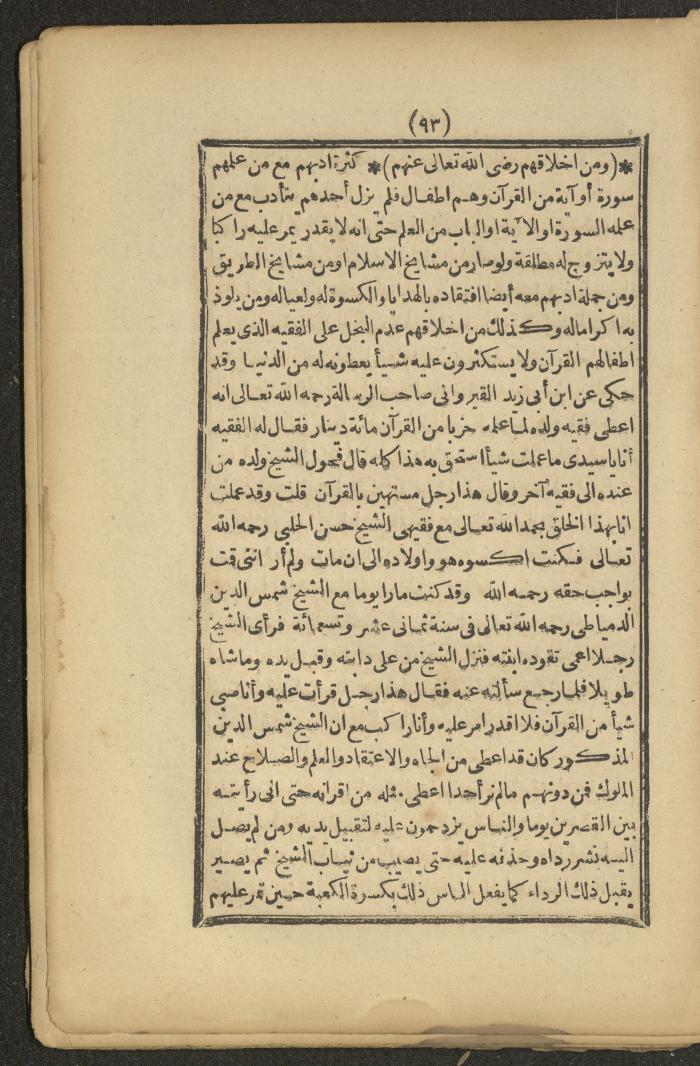 (٩٣)
*(ومن اخلاقهم رضى الله تعالى عنهم)* كثرة ادبهم مع من علمهم
سورة أو آية من القرآن وهم اطفال فلم يزل أحدهم يتأدب مع من
علمه السورة او الآية او الباب من العلم حتى انه لا يقدر يمر عليه راكبا
ولا يتزوج له مطلقة ولو صار من مشايخ الاسلام او من مشايخ الطريق
ومن جملة ادبهم معه أيضا افتقاده بالهدايا والكسوة له ولعياله ومن يلوذ
به اكراما له وكذلك من اخلاقهم عدم البخل على الفقيه الذى يعلم
اطفالهم القرآن ولا يستكثرون عليه شيأ يعطونه له من الدنيا وقد
حكى عن ابن أبى زيد القيروانى صاحب الرسالة رحمه الله تعالى انه
اعطى فقيه ولده لما علمه حزبا من القرآن مائة دينار فقال له الفقيه
أنا ياسيدى ما عملت شيأ استحق به هذا كله قال فحول الشيخ ولده من
عنده الى فقيه آخر وقال هذا رجل مستهين بالقرآن قلت وقد عملت
انا بهذا الخلق بحمد الله تعالى مع فقيهى الشيخ حسن الحلبى رحمه الله
تعالى فكنت اكسوه هو واولاده الى ان مات ولم أر اننى قمت
بواجب حقه رحمه الله وقد كنت مارا يوما مع الشيخ شمس الدين
الدمياطى رحمه الله تعالى فى سنة ثمانى عشر وتسعمائة فرأى الشيخ
رجلا اعمى تقوده ابنته فنزل الشيخ من على دابته وقبل يده وماشاه
طويلا فلما رجع سألته عنه فقال هذا رجل قرأت عليه وأنا صبى
شيأ من القرآن فلا اقدر امر عليه وأنا راكب مع ان الشيخ شمس الدين
المذكور كان قد اعطى من الجاه والاعتقاد والعلم والصلاح عند
الملوك فمن دونهم ما لم نر أحدا اعطى مثله من اقرانه حتى انى رأيته
بين القصرين يوما والناس يزدحمون عليه لتقبيل يديه ومن لم يصل
اليه نشر رداه وحذفه عليه حتى يصيب من ثياب الشيخ ثم يصير
يقبل ذلك الرداء كما يفعل الناس ذلك بكسوة الكعبة حين تمر عليهم